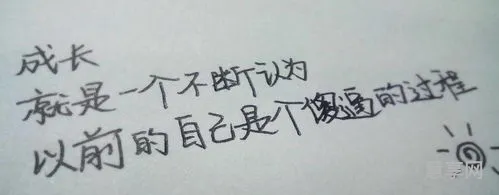 成长
就是一个不断认为
以前的自己是个傻逼的过程
意享网